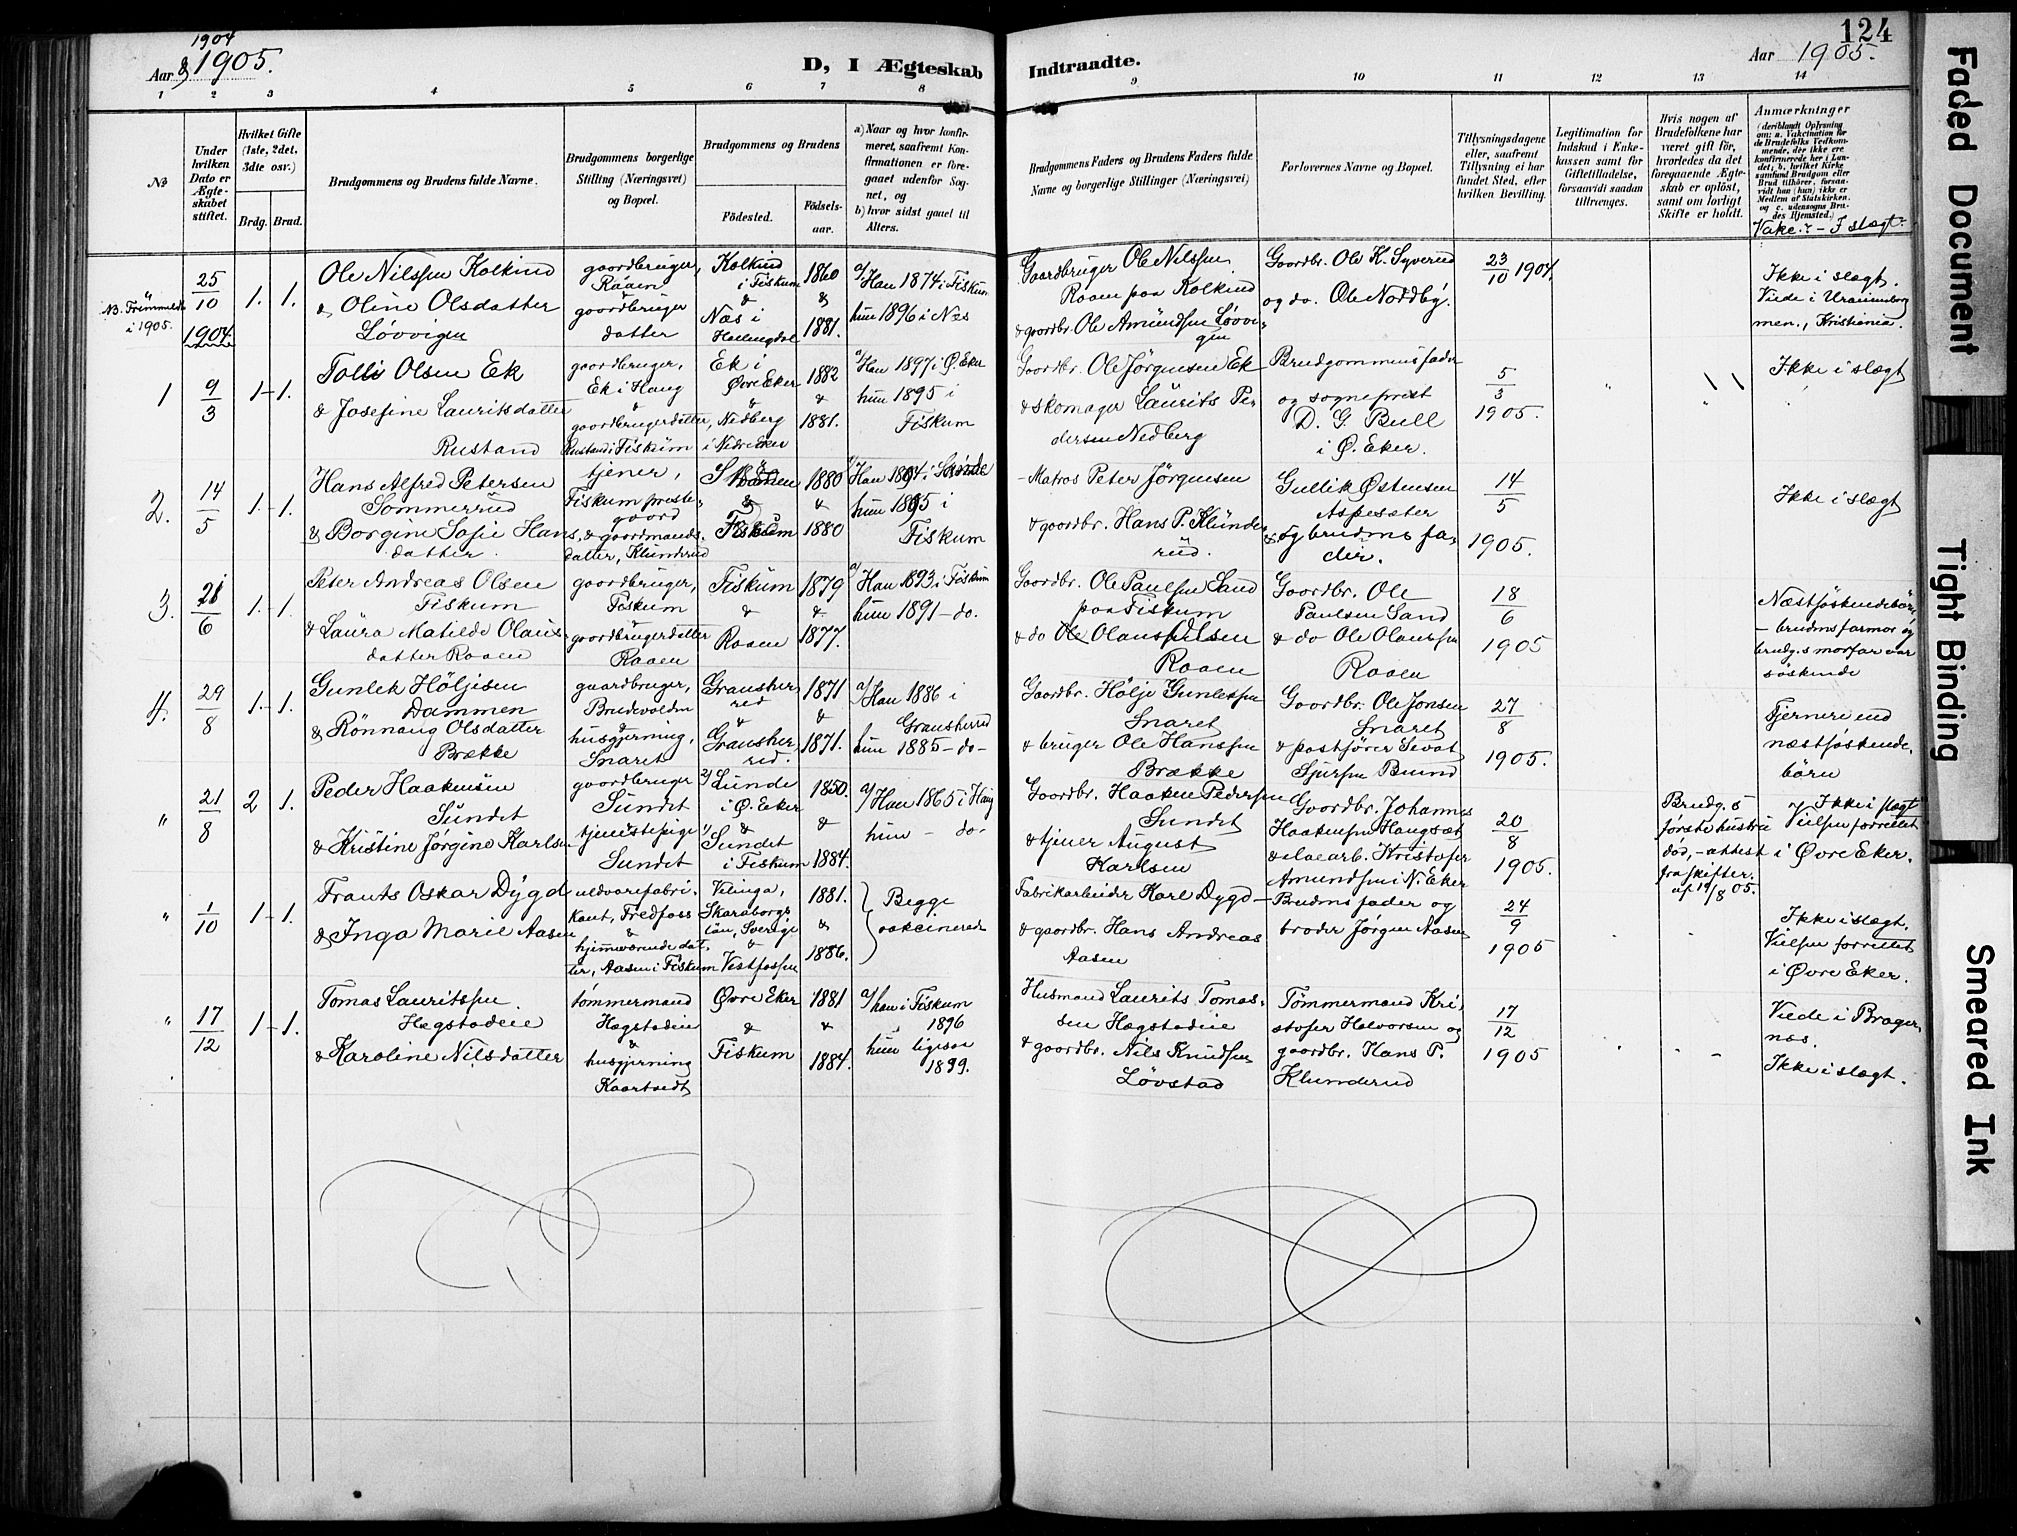 1904
Aar & 1905.
D, I Ægteskab
Indtraadte.
Aar 1905.
124
1
2
3
4
5
6
7
8
9
10
11
12
13
14
No
Under
hvilken
Dato er
Ægte-
skabet
stiftet.
Hvilket Gifte
(1ste, 2det,
3die osv.)
Brdg.
Brud.
Brudgommens og Brudens fulde Navne.
Brudgommens borgerlige
Stilling (Næringsvei)
og Bopæl.
Brudgommens og Brudens
Fødested.
Fødsels-
aar.
a) Naar og hvor konfir-
meret, saafremt Kon-
firmationen er fore-
gaaet udenfor Sog-
net, og
b) hvor sidst gaaet til
Alters.
Brudgommens Faders og Brudens Faders fulde
Navne og borgerlige Stillinger (Næringsvei)
Forlovernes Navne og Bopæl.
Tillysningsdagene
eller, saafremt
Tillysning ei har
fundet Sted, efter
hvilken Bevilling.
Legitimation for
Indskud i Enke-
kassen samt for
Giftetilladelse,
forsaavidt saadan
tiltrænges.
Hvis nogen af
Brudefolkene har
været gift før,
hvorledes da det
foregaaende Ægte-
skab er opløst,
samt om lovligt
Skifte er holdt.
Anmærkninger
(deriblandt Oplysning
om: a. Vakcination for
de Brudefolks Vedkom-
mende, der ikke ere
konfirmerede her i Lan-
det, b. hvilket Kirke
samfund Brudgom eller
Brud tilhører, forsaa-
vidt han (hun) ikke er
Medlem af Statskirken.
og c. udensogns Bru-
des Hjemsted.)
Vakc.? – I slægt?
NB. Fremmeldt
i 1905.
25
10
1904.
1. 1.
Ole Nilssen Kolkind
& Oline Olsdatter
Løvvigen
gaardbruger,
Raaen
gaardbruger
datter
Kolkind
i Fiskum
&
Næs i
Hallingdal
1860
&
1881.
a/ Han 1874 i Fiskum
hun 1896 i Næs
Gaardbruger Ole Nilssen
Raaen paa Kolkind
& gaardbr. Ole Amundsen Løvvi-
gen
Gaardbr. Ole K. Syverud
og do. Ole Noddby.
23
10 1904.
Ikke i slægt.
Viede i Uranienborg
men., Kristiania.
1
9
3
1 - 1.
Olsen Ek
& Josefine Lauritsdatter
Rustand
gaardbruger,
Ek i Haug
&
gaardbrugerdatter,
Rustand i Fiskum
Ek i
Øvre Eker
&
Nedberg
i Nedre Eker
1882
&
1881.
a/ Han 1897 i Ø. Eker
hun 1895 i
Fiskum
Gaardbr. Ole Jørgensen Ek
& skomager Laurits Pe-
dersen Nedberg
Brudgommens fader
og sogneprest
D. G. Bull
i Ø. Eker.
5
3
1905.
Ikke i slægt
2.
14
5
1 - 1.
Hans Alfred Petersen
Sommerrud
& Borgine Sofie Hans-
datter.
tjener,
Fiskum preste-
gaard
& gaardmands-
datter, Klunderud
&
Fiskum
1880
&
1880
hun 1895 i
Fiskum
- Matros Peter Jørgensen
& gaardbr. Hans P. Klunde-
rud.
Gullik Østensen
Aspesæter
& og brudens fa-
der.
14
5
1905.
Ikke i slægt
3.
21
6
1 - 1.
Peter Andreas Olsen
Fiskum
& Laura Matilde Olaus-
datter Raaen
gaardbruger,
Fiskum
gaardbrugerdatter
Raaen
Fiskum
&
Raaen
1879
&
1877.
a/ Han 1893 i Fiskum
hun 1891 – do.
Gaardbr. Ole Paulsen Sand
paa Fiskum
Raaen
Gaardbr. Ole
Paulsen Sand
& do Ole Olaussen
Raaen
18
6
1905
Næstsøskendebørn
– brudens farmor og
brudg.s morfar var
søskende
4.
29
8
1 - 1.
Gunlek Høljesen
Dammen
& Rønnaug Olsdatter
Brække
gaardbruger,
Brudevolden
&
husgjerning,
Snaret
Gransher-
red
&
Gransher-
red.
1871
&
1871.
a/ Han 1886 i
Gransherred
hun 1885 – do –
Gaardbr. Hølje Gunleksen
Snaret
& bruger Ole Hanssen
Brække
Gaardbr. Ole Jonsen
Snaret
& postfører Sevat
Sjursen Bruud
27
8
1905.
Fjernere end
næstsøskende-
børn
"
21
8
2 1.
Peder Haakensen
Sundet
& Kristine Jørgine Karlsen
gaardbruger
Sundet
tjenestepige
Sundet
Lunde
i Ø. Eker
&
Sundet
i Fiskum
1850.
&
1884.
a/ Han 1865 i Haug
hun – do.
Gaardbr. Haaken Pedersen
Sundet
& tjener August
Karlsen
Gaardbr. Johannes
Haakensen Haugsæt
Kristofer
Amundsen i N. Eker
20
8
1905.
Brudg.s
første hustru
død, – attest
fra skifter.
af 19/8 05.
Ikke i slægt
Vielsen forrettet
i Øvre Eker.
"
1
10
1 - 1.
Frants Oskar Dygd
& Inga Marie Aasen
uldvarefabri-
kant, Fredfoss
&
hjemmeværende dat-
ter, Aasen i Fiskum
Vilinga,
Skaraborgs
län, Sverige
&
Vestfossen
1881.
&
1886.
Begge
vakcinerede
Fabrikarbeider Karl Dygd
& gaardbr. Hans Andreas
Aasen
Brudens fader og
broder Jørgen Aasen
24
9
1905
Ikke i slægt.
Vielsen forrettet
i Øvre Eker.
"
17
12
1 - 1.
Tomas Lauritssen
Hægstadeie
& Karoline Nilsdatter
tømmermand
Hægstadeie
&
husgjerning
Kaartvedt
Øvre Eker
&
Fiskum
1881
&
1884.
a/ han i Fiskum
1896
hun ligesaa
1899.
Husmand Laurits Tomas-
sen Hægstadeie
& gaardbr. Nils Knudsen
Løvstad
Tømmermand Kri-
stofer Halvorsen og
gaardbr. Hans P.
Klunderud
17
12
1905
Viede i Brager-
næs.
Ikke i slægt.
Faded Document
Tight Binding
Smeared Ink